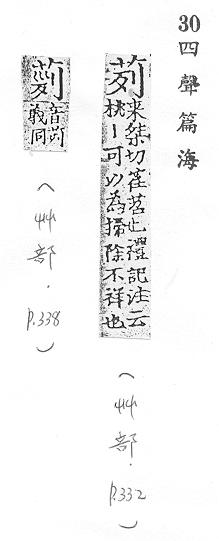 30 四聲篇海
茢
来桀切萑苕也禮記注云
桃丨可以為掃除不祥也
(艸部.p.332)
音茢
義同
(艸部.p.338)